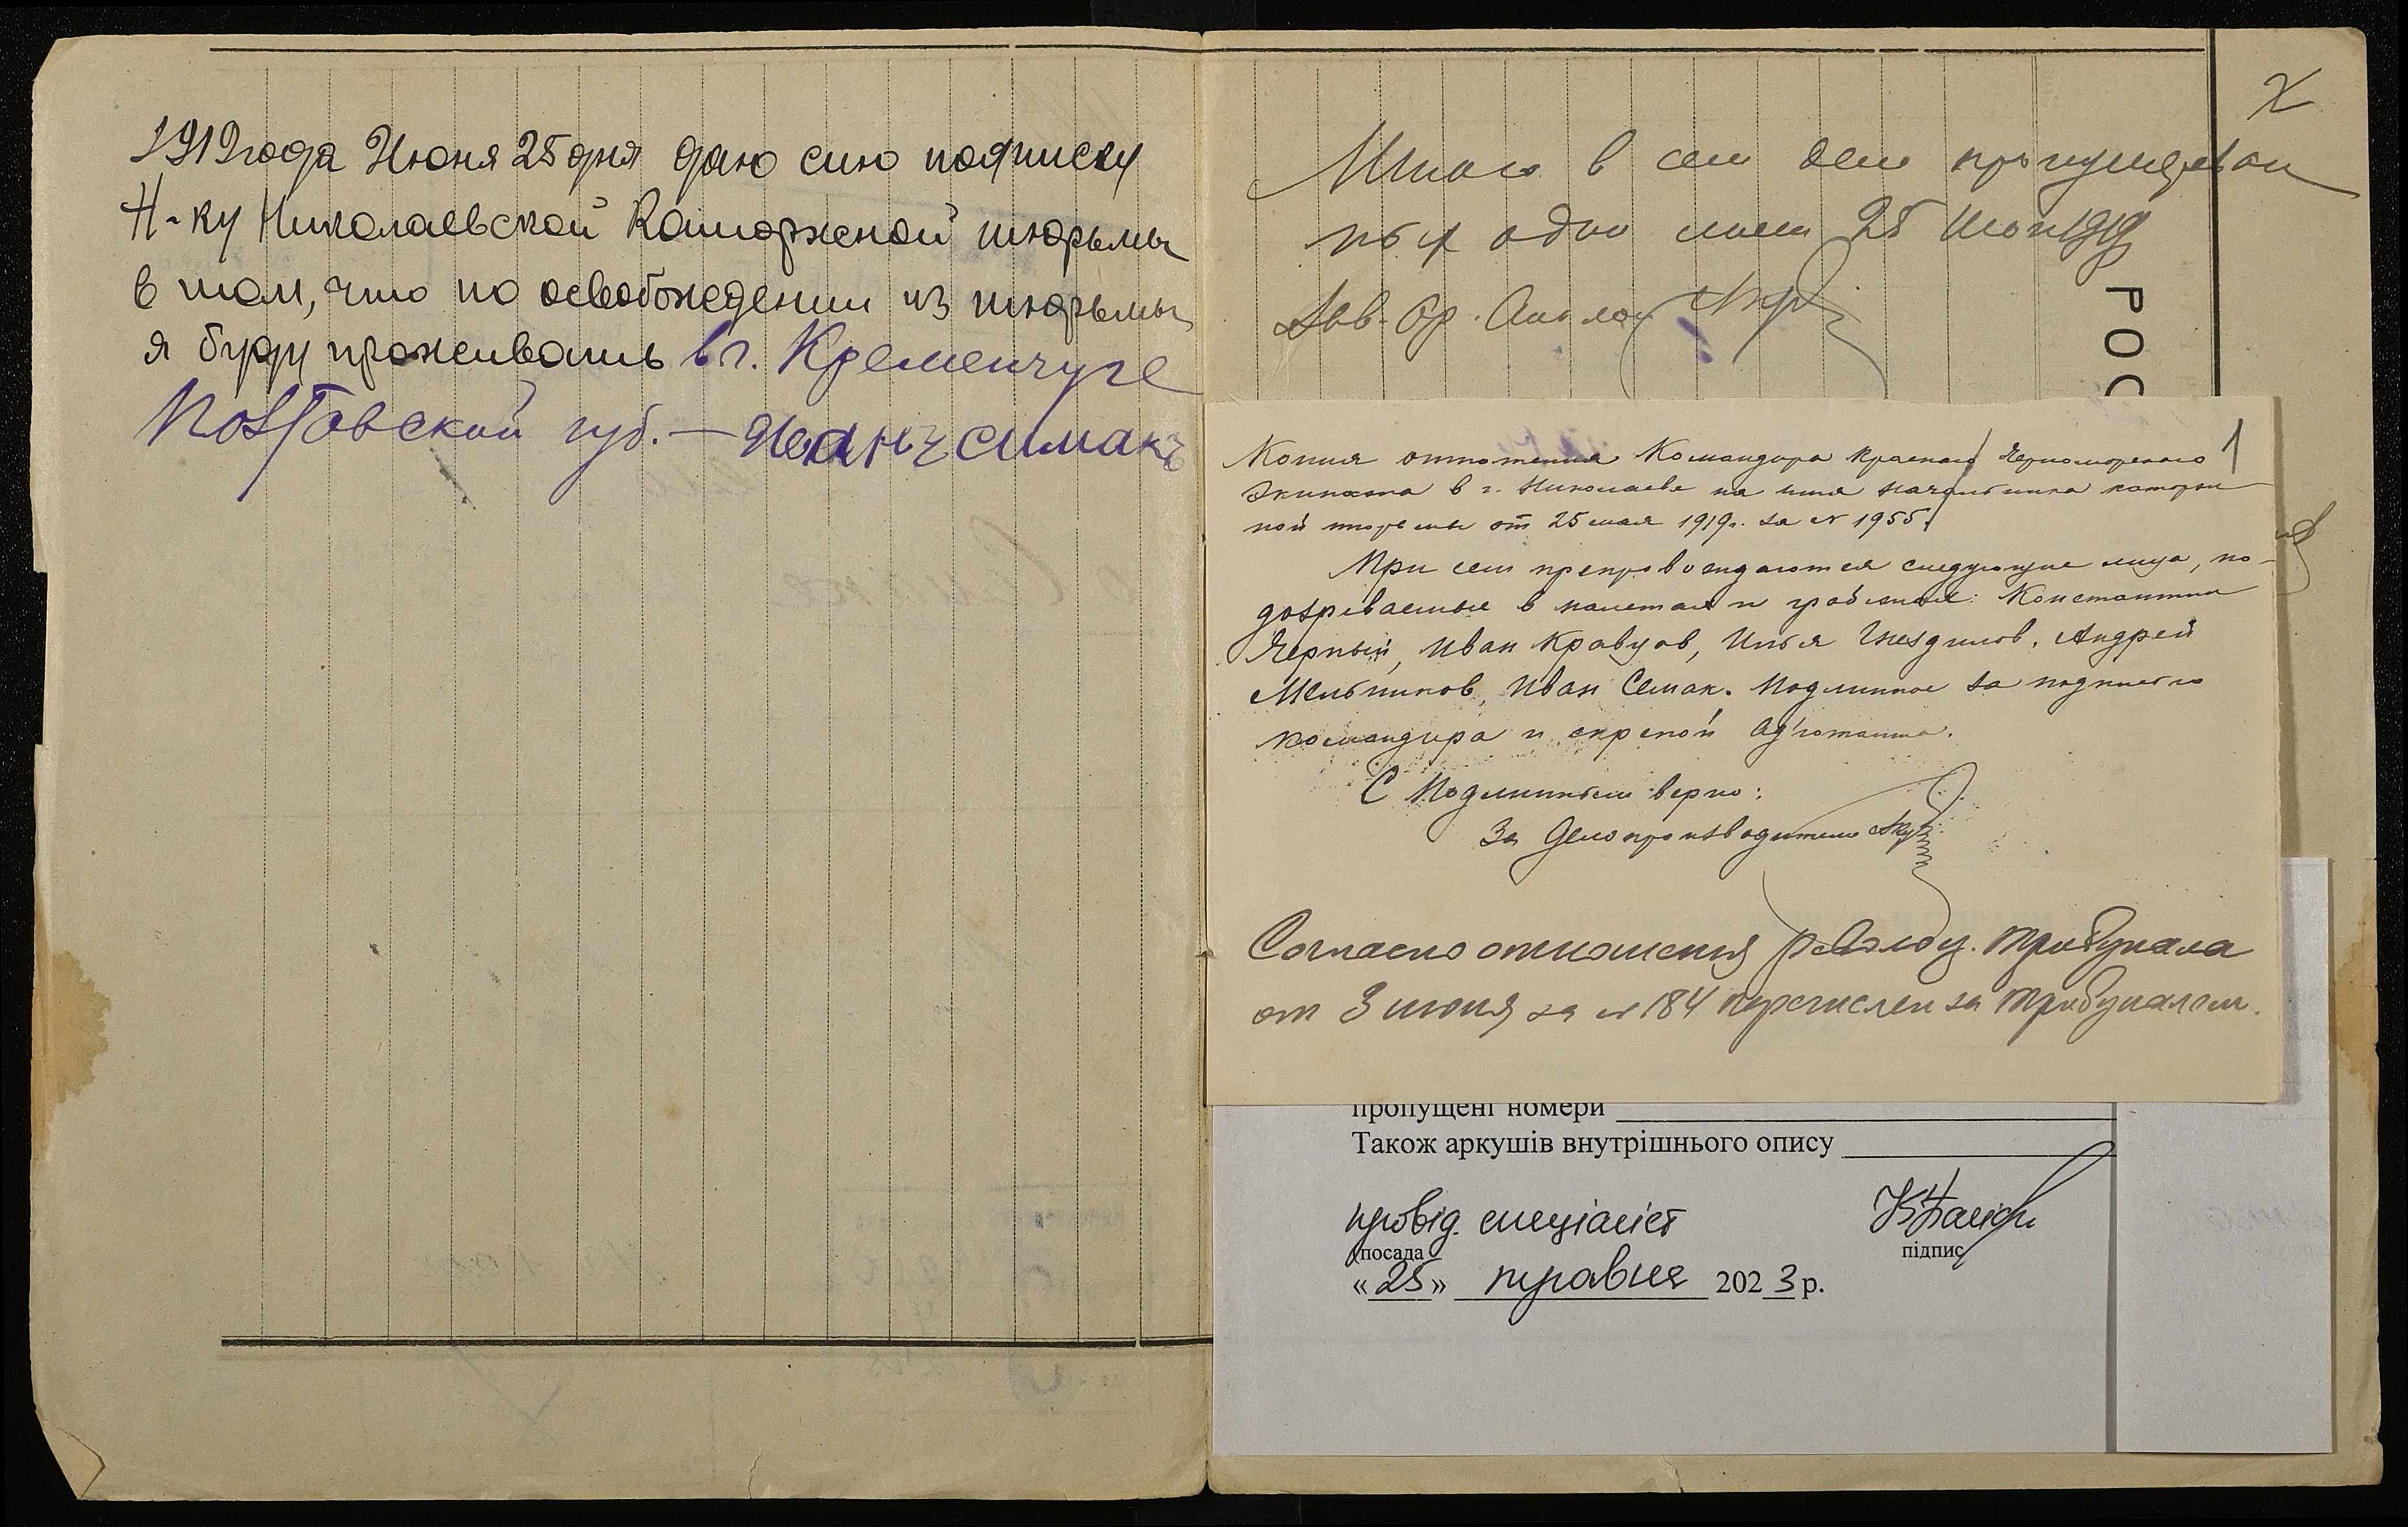 1919 года Июня 25 дня даю сию подписку
Н-ку Николаевской Каторжной тюрьмы
в том, что по освобождении из тюрьмы
я буду проживать в г. Кременчуге
Полтавской губ. — Иванъ симакъ
Итого в сем деле пронумерован
ных один лист 25 Июн 1919
РОС
1
Копия отношения Командира Красного Черноморского
Экипажа в г. Николаеве на имя Начальника каторж
ной тюрьмы от 25 мая 1919 г. за № 1955.
При сем препровождаются следующие лица, по-
дозреваемые в налетах и грабежах: Константин
Черный, Иван Кравцов, Илья Гнездилов, Андрей
Мельников, Иван Семак. Подлинное за подписью
командира и скрепой Ад'ютанта.
С Подлинным верно:
За Делопроизводителя
Согласно отношения революц. трибунала
от 3 июня за № 184 перечислен за трибуналом.
пропущені номери
Також аркушів внутрішнього опису
провід. спеціаліст
посада
підпис
«25» травня 2023 р.